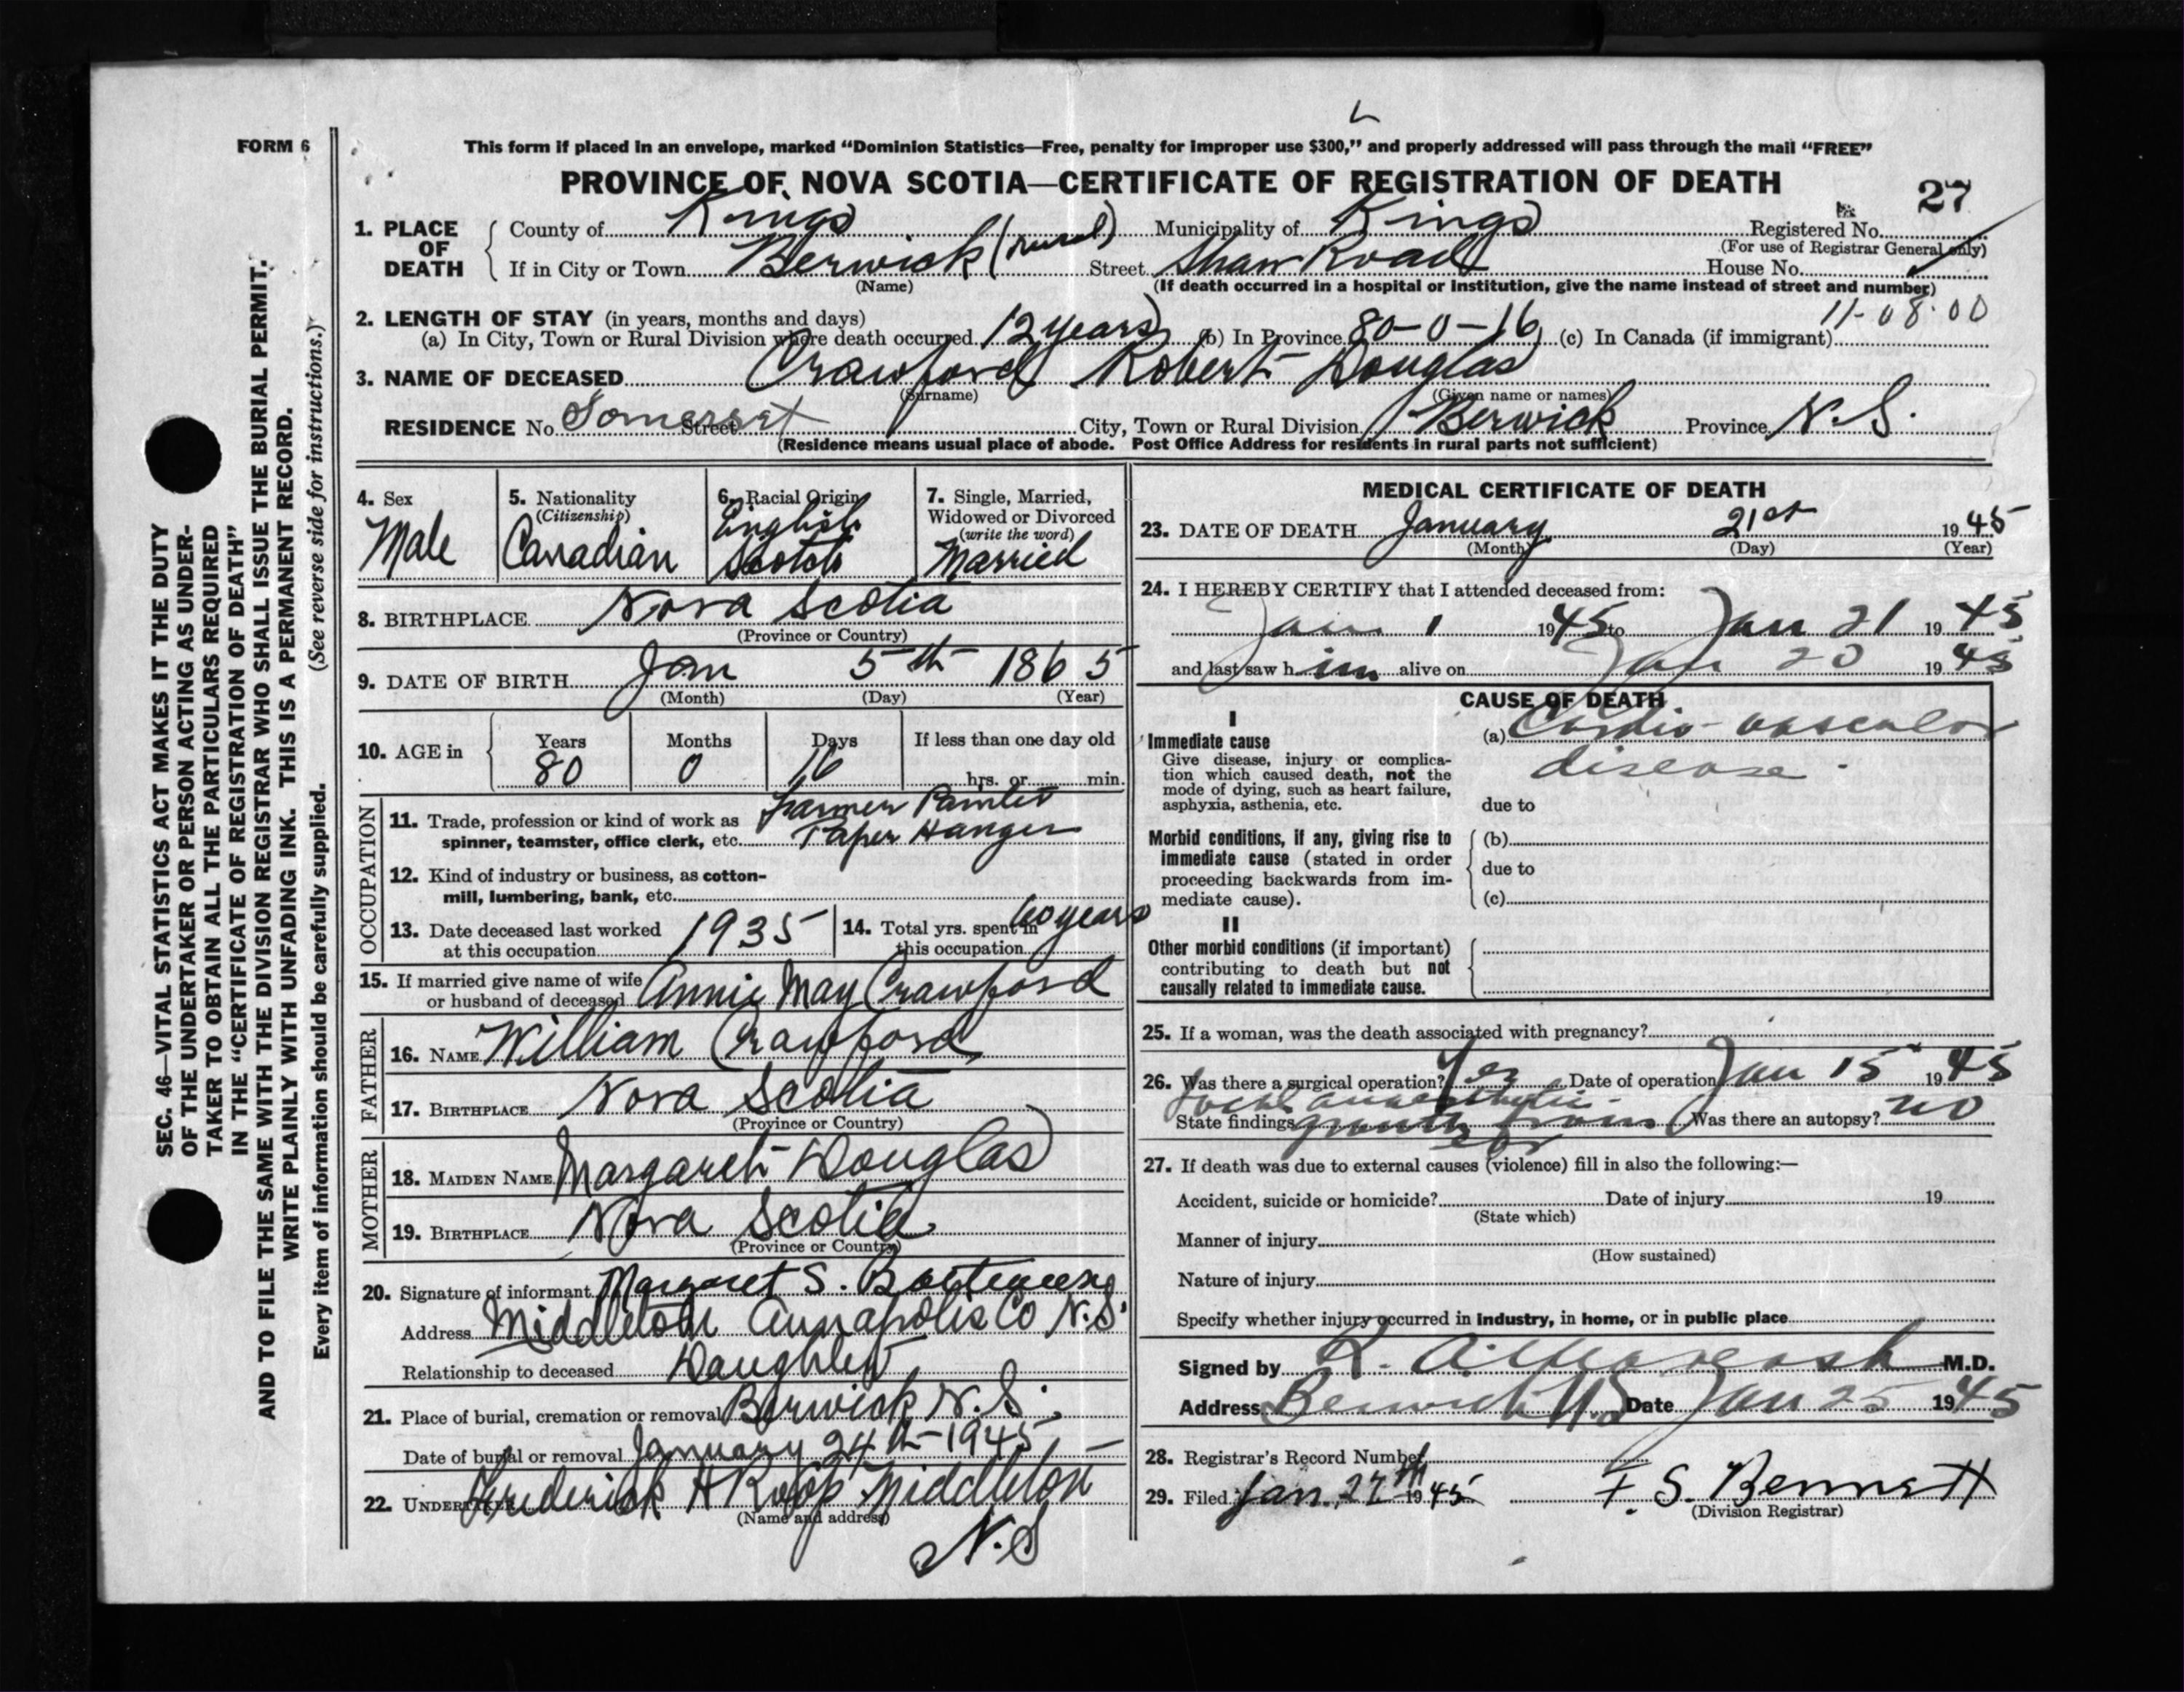 FORM 6
This form if placed in an envelope, marked “Dominion Statistics—Free, penalty for improper use $300,” and properly addressed will pass through the mail “FREE”
PROVINCE OF NOVA SCOTIA—CERTIFICATE OF REGISTRATION OF DEATH
27
1. PLACE OF DEATH
County of Kings Municipality of Kings Registered No.
(For use of Registrar General only)
If in City or Town Berwick (rural) Street Shaw Road House No.
(Name) (If death occurred in a hospital or institution, give the name instead of street and number)
11-08-00
2. LENGTH OF STAY (in years, months and days)
(a) In City, Town or Rural Division where death occurred 12 years (b) In Province 80-0-16 (c) In Canada (if immigrant)
3. NAME OF DECEASED Crawford Robert Douglas
(Surname) (Given name or names)
RESIDENCE No. Somerset Street City, Town or Rural Division Berwick Province N.S.
(Residence means usual place of abode. Post Office Address for residents in rural parts not sufficient)
4. Sex
Male
5. Nationality
(Citizenship)
Canadian
6. Racial Origin
English
Scotch
7. Single, Married,
Widowed or Divorced
(write the word)
Married
8. BIRTHPLACE Nova Scotia
(Province or Country)
9. DATE OF BIRTH Jan 5th 1865
(Month) (Day) (Year)
10. AGE in Years Months Days If less than one day old
80 0 16 hrs. or min.
OCCUPATION
11. Trade, profession or kind of work as spinner, teamster, office clerk, etc. Farmer Painter
Paper Hanger
12. Kind of industry or business, as cotton-
mill, lumbering, bank, etc.
13. Date deceased last worked
at this occupation 1935
14. Total yrs. spent in
this occupation 60 years
15. If married give name of wife
or husband of deceased Annie May Crawford
FATHER
16. NAME William Crawford
17. BIRTHPLACE Nova Scotia
(Province or Country)
MOTHER
18. MAIDEN NAME Margaret Douglas
19. BIRTHPLACE Nova Scotia
(Province or Country)
20. Signature of informant Margaret S.
Address Middleton Annapolis Co N.S.
Relationship to deceased Daughter
21. Place of burial, cremation or removal Berwick N.S.
Date of burial or removal January 24th-1945
22. UNDERTAKER Frederick A Roop Middleton
(Name and address)
N.S
MEDICAL CERTIFICATE OF DEATH
23. DATE OF DEATH January 21st 1945
(Month) (Day) (Year)
24. I HEREBY CERTIFY that I attended deceased from:
Jan 1 1945 to Jan 21 1945
and last saw him alive on Jan 20 1945
CAUSE OF DEATH
I
Immediate cause
Give disease, injury or complica-
tion which caused death, not the
mode of dying, such as heart failure,
asphyxia, asthenia, etc.
(a) Cardio-vascular
disease.
due to
Morbid conditions, if any, giving rise to
immediate cause (stated in order
proceeding backwards from im-
mediate cause).
(b)
due to
(c)
II
Other morbid conditions (if important)
contributing to death but not
causally related to immediate cause.
25. If a woman, was the death associated with pregnancy?
26. Was there a surgical operation? Yes Date of operation Jan 15 1945
local anaesthetic
State findings growth from Was there an autopsy? no
ear
27. If death was due to external causes (violence) fill in also the following:—
Accident, suicide or homicide? Date of injury 19
(State which)
Manner of injury
(How sustained)
Nature of injury
Specify whether injury occurred in industry, in home, or in public place
Signed by M.D.
Address Berwick N.S Date Jan 25 1945
28. Registrar's Record Number
29. Filed Jan. 27th 1945 F. S. Bennett
(Division Registrar)
SEC. 46—VITAL STATISTICS ACT MAKES IT THE DUTY
OF THE UNDERTAKER OR PERSON ACTING AS UNDER-
TAKER TO OBTAIN ALL THE PARTICULARS REQUIRED
IN THE “CERTIFICATE OF REGISTRATION OF DEATH”
AND TO FILE THE SAME WITH THE DIVISION REGISTRAR WHO SHALL ISSUE THE BURIAL PERMIT.
WRITE PLAINLY WITH UNFADING INK. THIS IS A PERMANENT RECORD.
Every item of information should be carefully supplied. (See reverse side for instructions.)